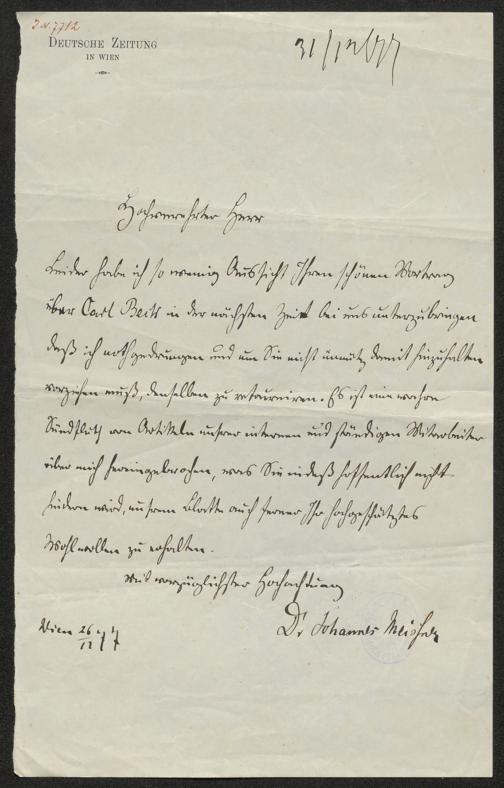 I.N. 7712
DEUTSCHE ZEITUNG
IN WIEN
31/12/77
Hochverehrter Herr
Leider habe ich so wenig Aussicht Ihren schönen Vortrag
über Carl Beck in der nächsten Zeit bei uns unterzubringen
daß ich nothgedrungen und um Sie nicht unnütz damit hinzuhalten
vorziehen muß, denselben zu retourniren. Es ist eine wahre
Sündfluth von Artikeln unserer internen und ständigen Mitarbeiter
über mich hereingebrochen, was Sie indeß hoffentlich nicht
hindern wird, unserem Blatte auch ferner Ihr hochgeschätztes
Wohlwollen zu erhalten.
Mit vorzüglichster Hochachtung
Dr. Johannes
Wien 26/12 77